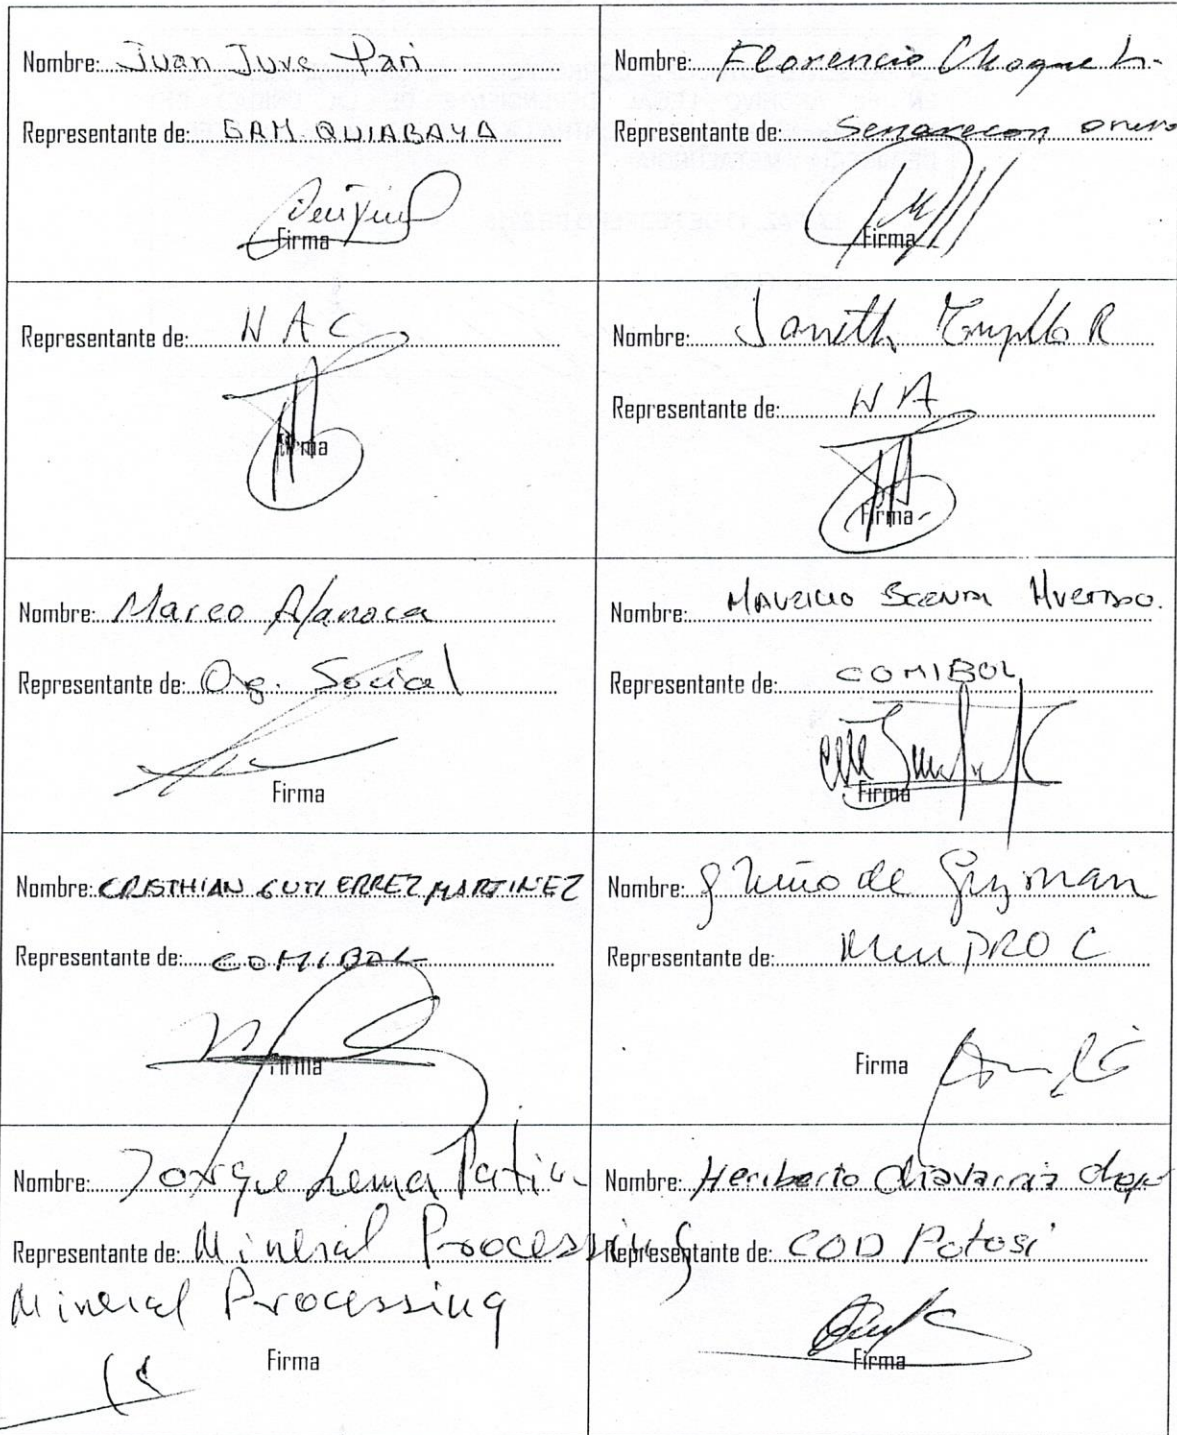 Nombre: Juan Juve Pari
Representante de: GAM. QUIABAYA
Firma
Nombre: Florencio Choque L.
Representante de: Senarecom oruro
Firma
Representante de: NAC
Firma
Nombre: Janeth Trujillo R
Representante de: NA
Firma
Nombre: Marco Alanoca
Representante de: Org. Social
Firma
Nombre: MAURICIO HURTADO.
Representante de: COMIBOL
Firma
Nombre: CRISTHIAN GUTIERREZ MARTINEZ
Representante de: COMIBOL
Firma
Nombre: g Nuño de Guzman
Representante de:
Firma
Nombre: Jorge Lema
Representante de: Mineral Processing
Mineral Processing
Firma
Nombre: Heriberto Chavarria
Representante de: COD Potosi
Firma